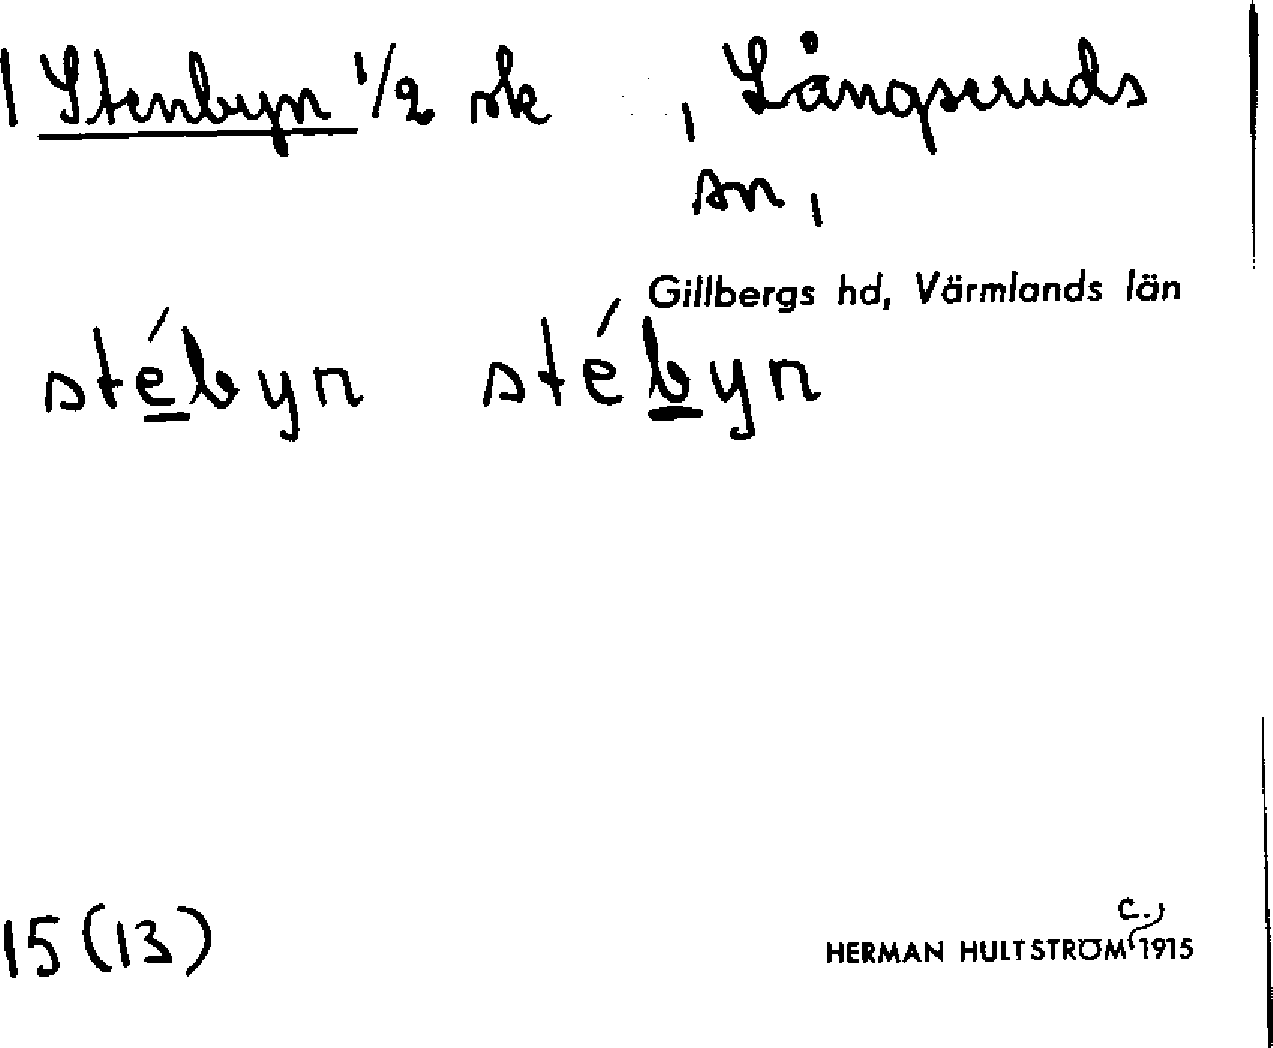 1 Stenbyn 1/2 sk , Långseruds
sn,
Gillbergs hd, Värmlands län
stébyn stébyn
15 (13)
c.,
HERMAN HULTSTRÖM 1915